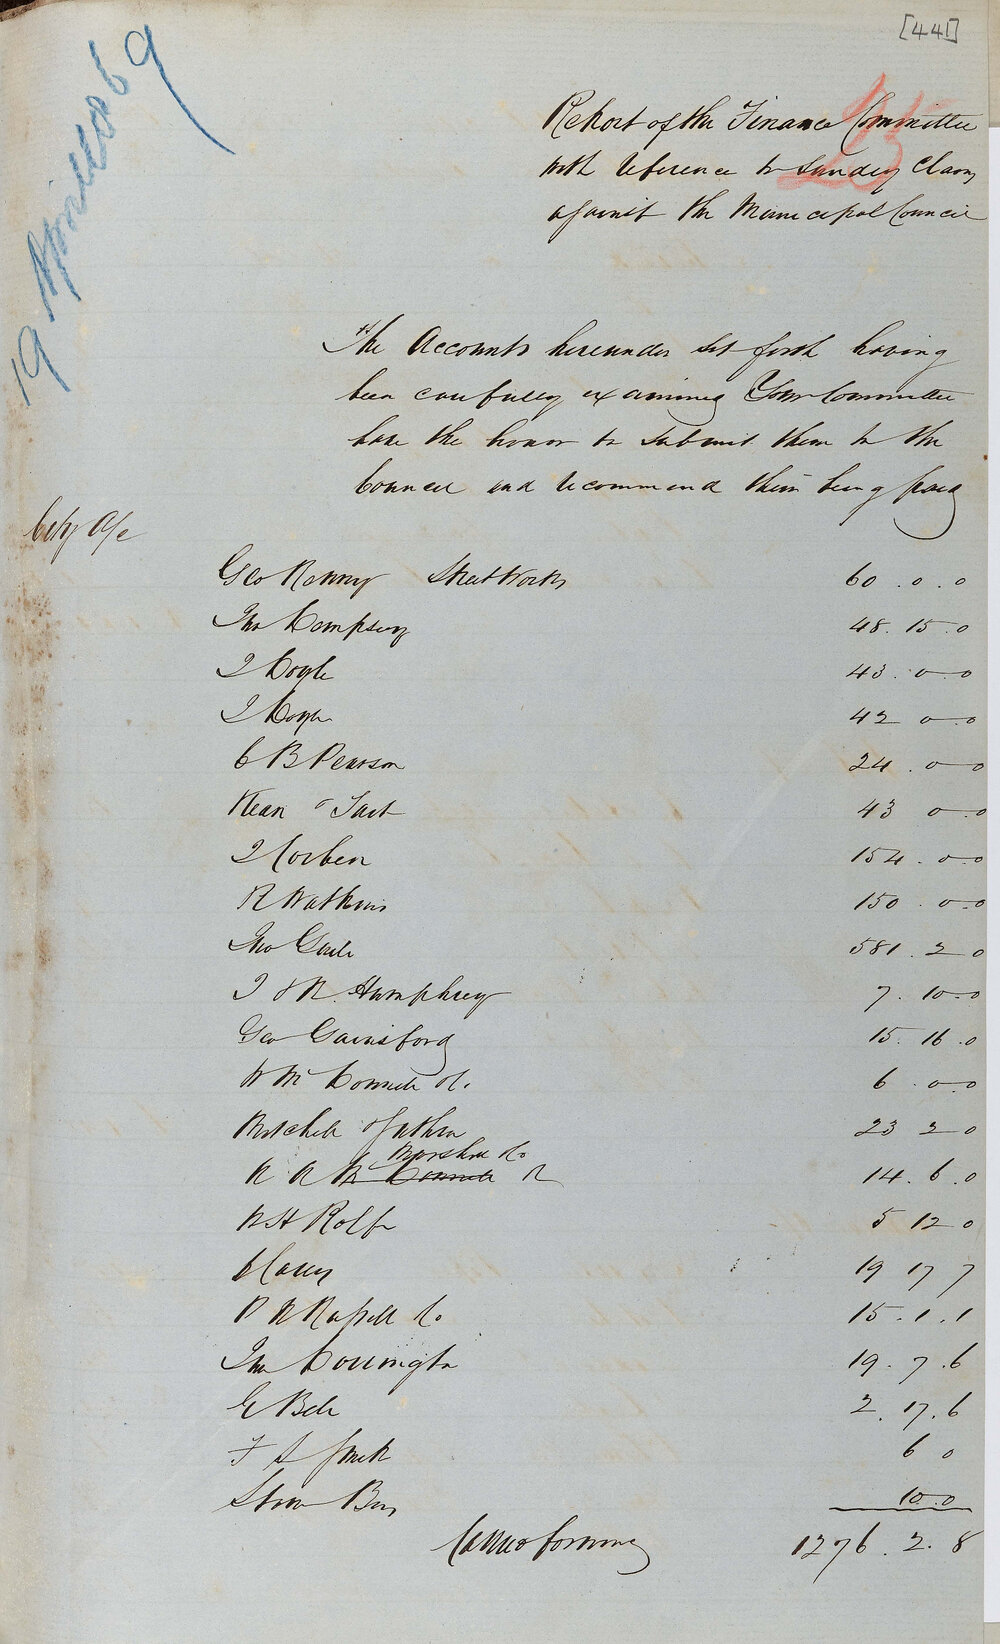 [441]
19 April 1869
25
Report of the Finance Committee
with reference to Sundry Claims
against the Municipal Council
The Accounts hereunder set forth having
been carefully examined Your Committee
have the honor to submit them to the
Council and recommend their being paid
City A/c
Geo Renny Street Works 60 . 0 . 0
Jno Dempsey 48 . 15 . 0
J Doyle 43 . 0 . 0
J Doyle 42 0 . 0
C B Pearson 24 . 0 0
Kean & Tait 43 0 . 0
J Corben 154 . 0 . 0
R Watkins 150 . 0 . 0
Jno Gale 581 . 2 0
J & R Humphrey 7 . 10 . 0
Geo Gainsford 15 . 16 . 0
W Mc Donnell & Co. 6 . 0 0
Mitchell & 23 2 0
Marshall & Co
14 . 6 . 0
W H Rolfe 5 12 0
Casey 19 17 7
P N Russell & Co 15 . 1 . 1
Jno Dorrington 19 . 7 . 6
E Bell 2 . 17 . 6
F S Smith 6 0
Shaw Bros 10 . 0
Carried forward 1276 . 2 . 8